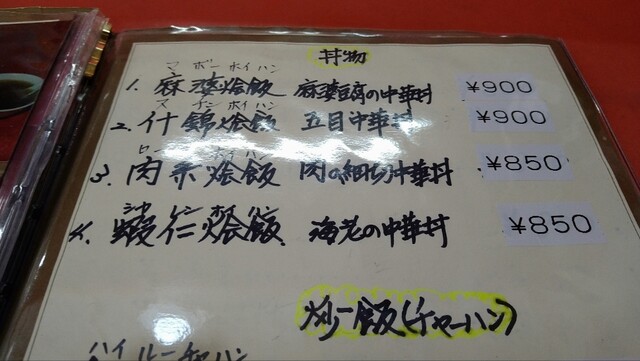 丼物
マ ボー ホイ ハン
1. 麻婆燴飯 麻婆豆腐の中華丼 ¥900
ス チン ホイ ハン
2. 什錦燴飯 五目中華丼 ¥900
3. 肉糸燴飯 肉の細切り中華丼 ¥850
シャ レン ホイ ハン
4. 蝦仁燴飯 海老の中華丼 ¥850
炒飯(チャーハン)